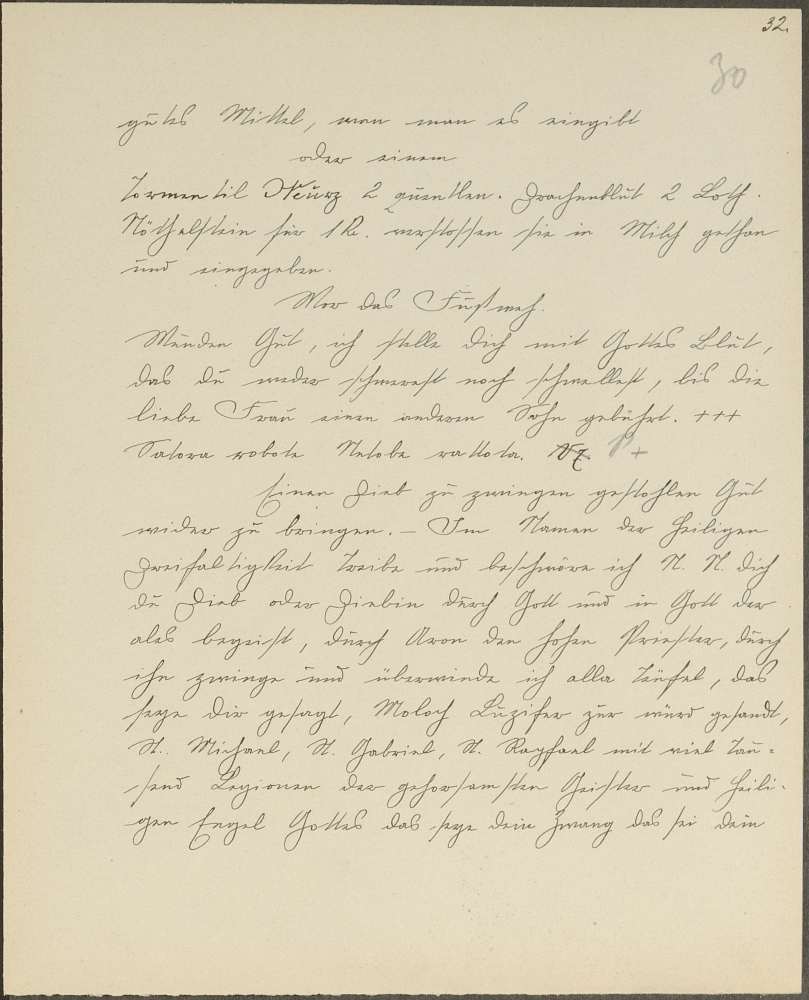 32.
30
gutes Mittel, wen man es eingibt
oder einem
Tormentil Wurz 2 quentlen. Drachenblut 2 Loth.
Röthelstein für 1 K. verstossen sie in Milch gethan
und eingegeben.
Wor das Fußweh.
Wunden Gut, ich stelle dich mit Gottes Blut,
das du weder schwerest noch schwellest, bis die
liebe Frau einen anderen Sohn gebührt. +++
Satora robote Netobe rattota. +
Einen Dieb zu zwingen gestohlen Gut
wider zu bringen. – Im Namen der heiligen
Dreifaltigkeit Treibe und beschwöre ich N. N. dich
du Dieb oder Diebin durch Gott und in Gott der
ales begeist, durch Aron den hohen Priester, durch
ihn zwinge und überwinde ich alla Teufel, das
seye dir gesagt, Moloch Luzifer zur würd gesandt,
St. Michael, St. Gabriel, St. Rapfael mit viel Tau-
send Legionen der gehorsamsten Geister und heili-
gen Engel Gottes das seye dein Zwang das sei dein